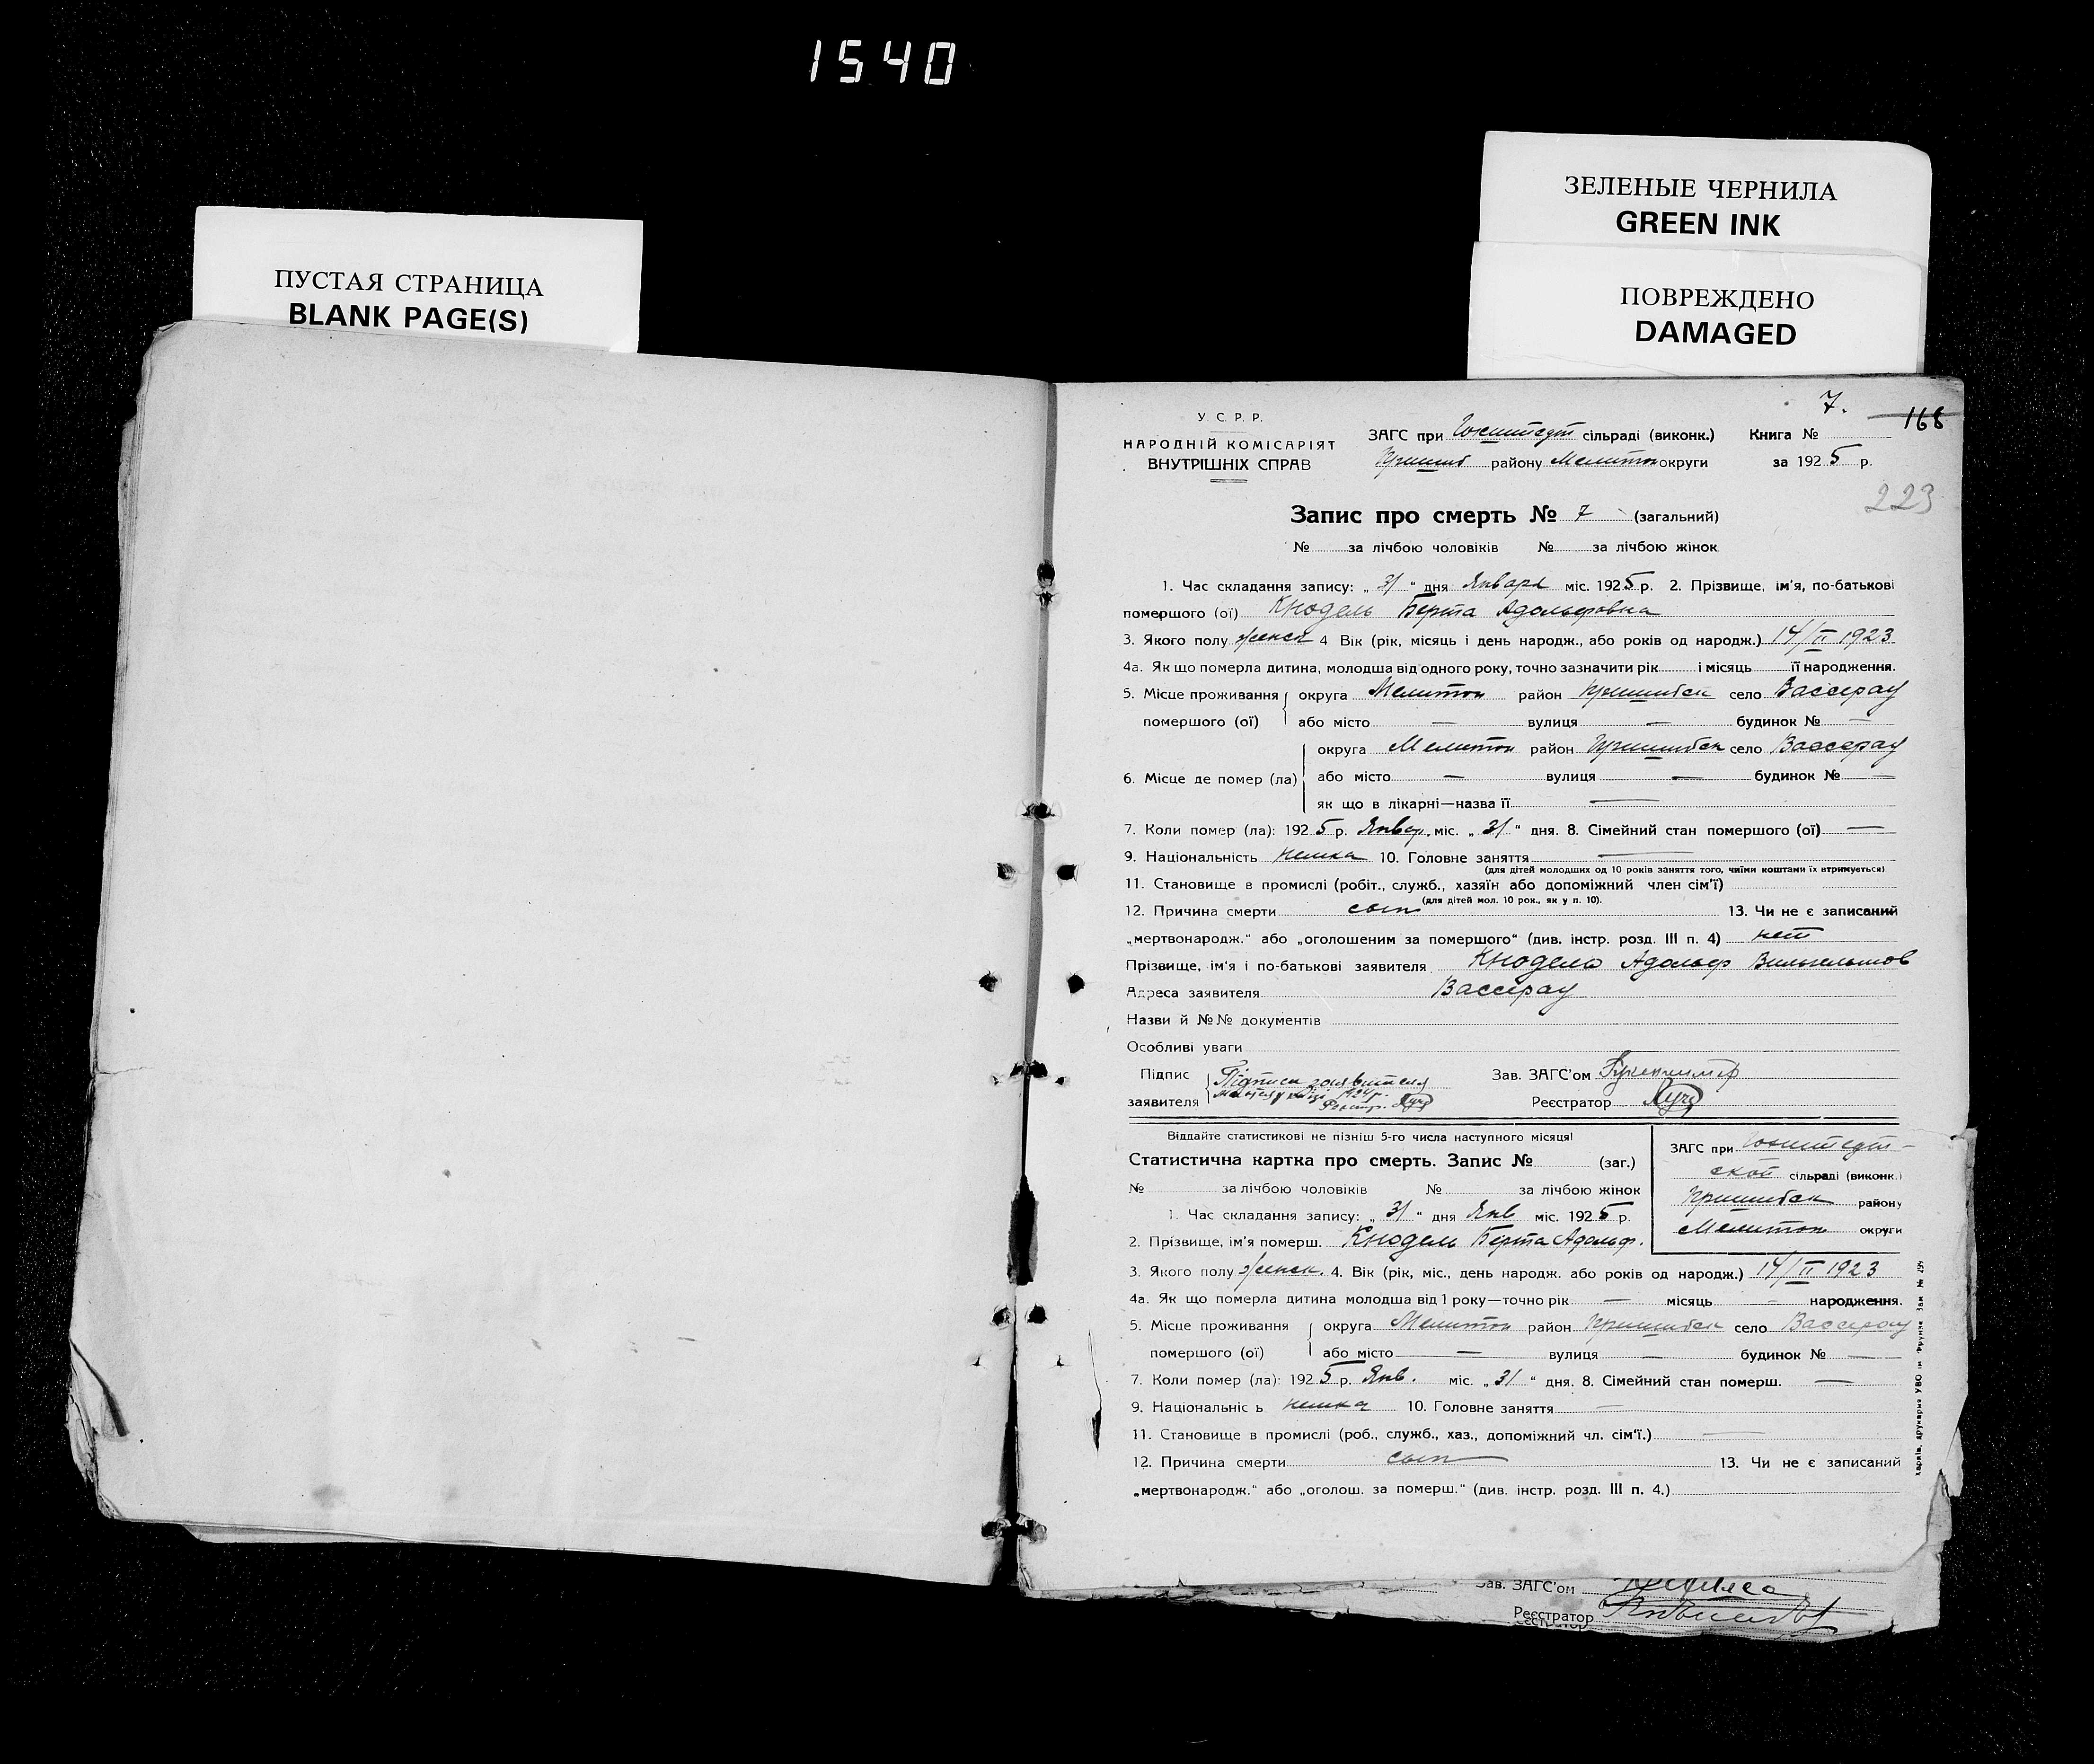 1540
ЗЕЛЕНЫЕ ЧЕРНИЛА
GREEN INK
ПОВРЕЖДЕНО
DAMAGED
ПУСТАЯ СТРАНИЦА
BLANK PAGE(S)
7. 168
У. С. Р. Р.
НАРОДНІЙ КОМІСАРІЯТ
ВНУТРІШНІХ СПРАВ
ЗАГС при сільраді (виконк.) Книга №
району Мелитоп округи за 1925 р.
223
Запис про смерть № 7 (загальний)
№ за лічбою чоловіків № за лічбою жінок
1. Час складання запису: „31“ дня Января міс. 1925 р. 2. Прізвище, ім'я, по-батькові
помершого (ої) Кнодель Берта Адольфовна
3. Якого полу женск 4 Вік (рік, місяць і день народж., або років од народж.) 14/II 1923
4а. Як що померла дитина, молодша від одного року, точно зазначити рік і місяць її народження.
5. Місце проживання округа Мелитоп район Пришибск село Вассерау
помершого (ої) або місто — вулиця — будинок № —
округа Мелитоп район Пришибск село Вассерау
6. Місце де помер (ла) або місто — вулиця — будинок № —
як що в лікарні—назва її —
7. Коли помер (ла): 1925 р. Январ. міс. „31“ дня. 8. Сімейний стан помершого (ої) —
9. Національність немка 10. Головне заняття —
(для дітей молодших од 10 років заняття того, чиїми коштами їх втримується)
11. Становище в промислі (робіт., служб., хазяїн або допоміжний член сім'ї)
(для дітей мол. 10 рок., як у п. 10).
12. Причина смерти сып 13. Чи не є записаний
„мертвонародж.“ або „оголошеним за помершого“ (див. інстр. розд. III п. 4) нет
Прізвище, ім'я і по-батькові заявителя Кнодель Адольф Вильгельмов
Адреса заявителя Вассерау
Назви й №№ документів
Особливі уваги
Підпис Зав. ЗАГС'ом
заявителя Реєстратор
Віддайте статистикові не пізніш 5-го числа наступного місяця!
Статистична картка про смерть. Запис № (заг.)
№ за лічбою чоловіків № за лічбою жінок
1. Час складання запису: „31“ дня Янв міс. 1925 р.
2. Прізвище, ім'я померш. Кнодель Берта Адольф.
ЗАГС при
ской сільраді (виконк.)
Пришибск району
Мелитоп округи
3. Якого полу женск. 4. Вік (рік, міс., день народж. або років од народж.) 14/II 1923
4а. Як що померла дитина молодша від 1 року—точно рік — місяць — народження.
5. Місце проживання округа Мелитоп район Пришибск село Вассерау
помершого (ої) або місто — вулиця — будинок № —
7. Коли помер (ла): 1925 р. Янв. міс. „31“ дня. 8. Сімейний стан померш. —
9. Національніс ь немка 10. Головне заняття —
11. Становище в промислі (роб., служб., хаз., допоміжний чл. сім'ї.) —
12. Причина смерти сып 13. Чи не є записаний
„мертвонародж.“ або „оголош. за померш.“ (див. інстр. розд. III п. 4.)
Зав. ЗАГС'ом
Реєстратор